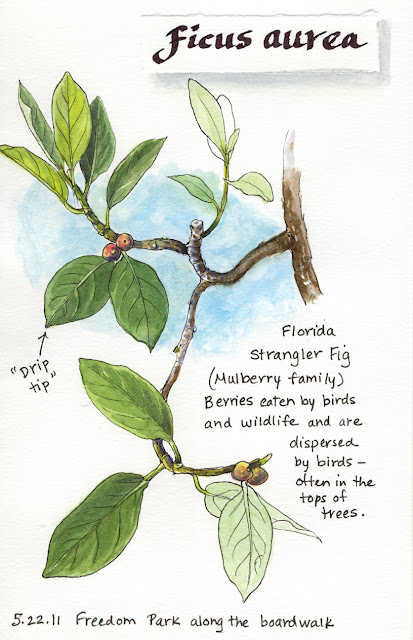 Ficus aurea
"Drip
tip"
Florida
Strangler Fig
(Mulberry family)
Berries eaten by birds
and wildlife and are
dispersed
by birds –
often in the
tops of
trees.
5.22.11 Freedom Park along the boardwalk